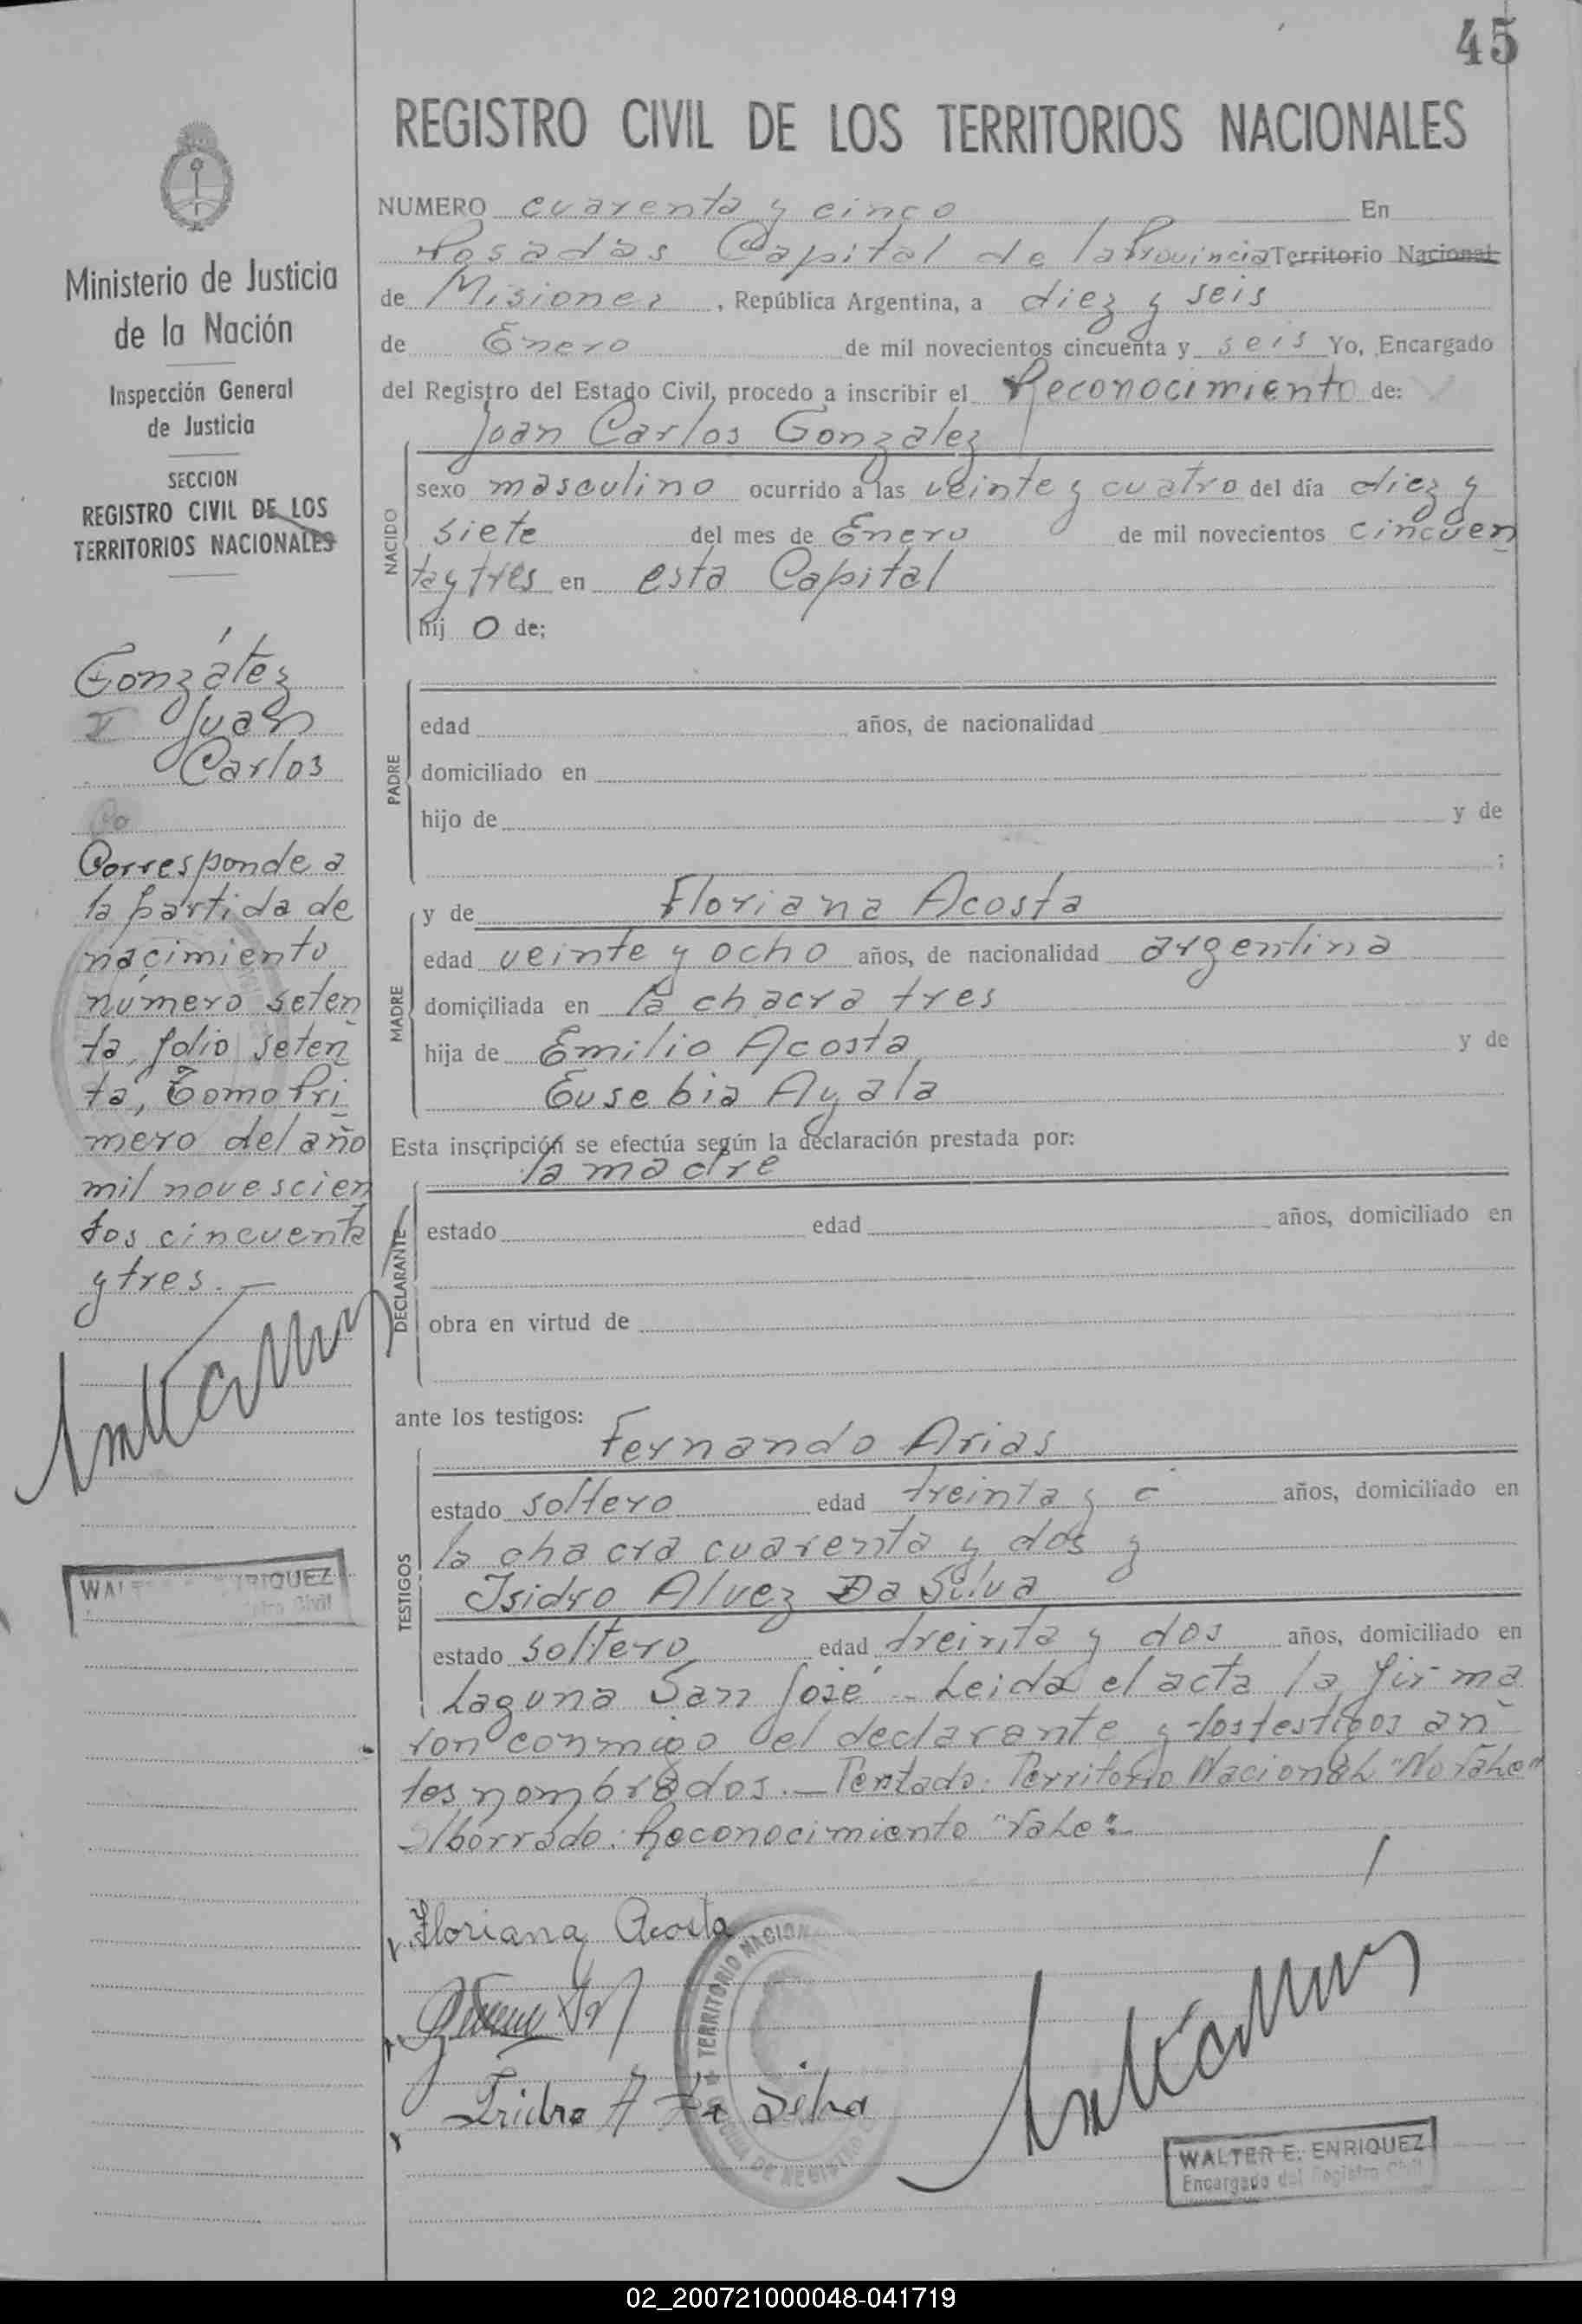 45
REGISTRO CIVIL DE LOS TERRITORIOS NACIONALES
Ministerio de Justicia
de la Nación
Inspección General
de Justicia
SECCION
REGISTRO CIVIL DE LOS
TERRITORIOS NACIONALES
González
Juan
Carlos
Corresponde a
la partida de
nacimiento
número seten
ta, folio seten
ta, Tomo Pri
mero del año
mil novescien
tos cincuenta
y tres.
NUMERO cuarenta y cinco En
Posadas Capital de la Provincia Territorio Nacional
de Misiones, República Argentina, a diez y seis
de Enero de mil novecientos cincuenta y seis Yo, Encargado
del Registro del Estado Civil, procedo a inscribir el Reconocimiento de:
Juan Carlos Gonzalez
NACIDO
sexo masculino ocurrido a las veinte y cuatro del día diez y
siete del mes de Enero de mil novecientos cincuen
ta y tres en esta Capital
hij o de;
PADRE
edad años, de nacionalidad
domiciliado en
hijo de y de
;
MADRE
y de Floriana Acosta
edad veinte y ocho años, de nacionalidad argentina
domiciliada en la chacra tres
hija de Emilio Acosta y de
Eusebia Ayala
Esta inscripción se efectúa según la declaración prestada por:
la madre
DECLARANTE
estado edad años, domiciliado en
obra en virtud de
ante los testigos:
Fernando Arias
TESTIGOS
estado soltero edad treinta y años, domiciliado en
la chacra cuarenta y dos y
Isidro Alvez Da Silva
estado soltero edad treinta y dos años, domiciliado en
Laguna San José - Leida el acta la firma
ron conmigo el declarante y los testigos an
tes nombrados. — Testado: Territorio Nacional "No Vale"
S/borrado: Reconocimiento "Vale".
Floriana Acosta
Isidro A Da Silva
TERRITORIO NACION
DE REGISTRO
WALTER E. ENRIQUEZ
Encargado del Registro Civil
02_200721000048-041719